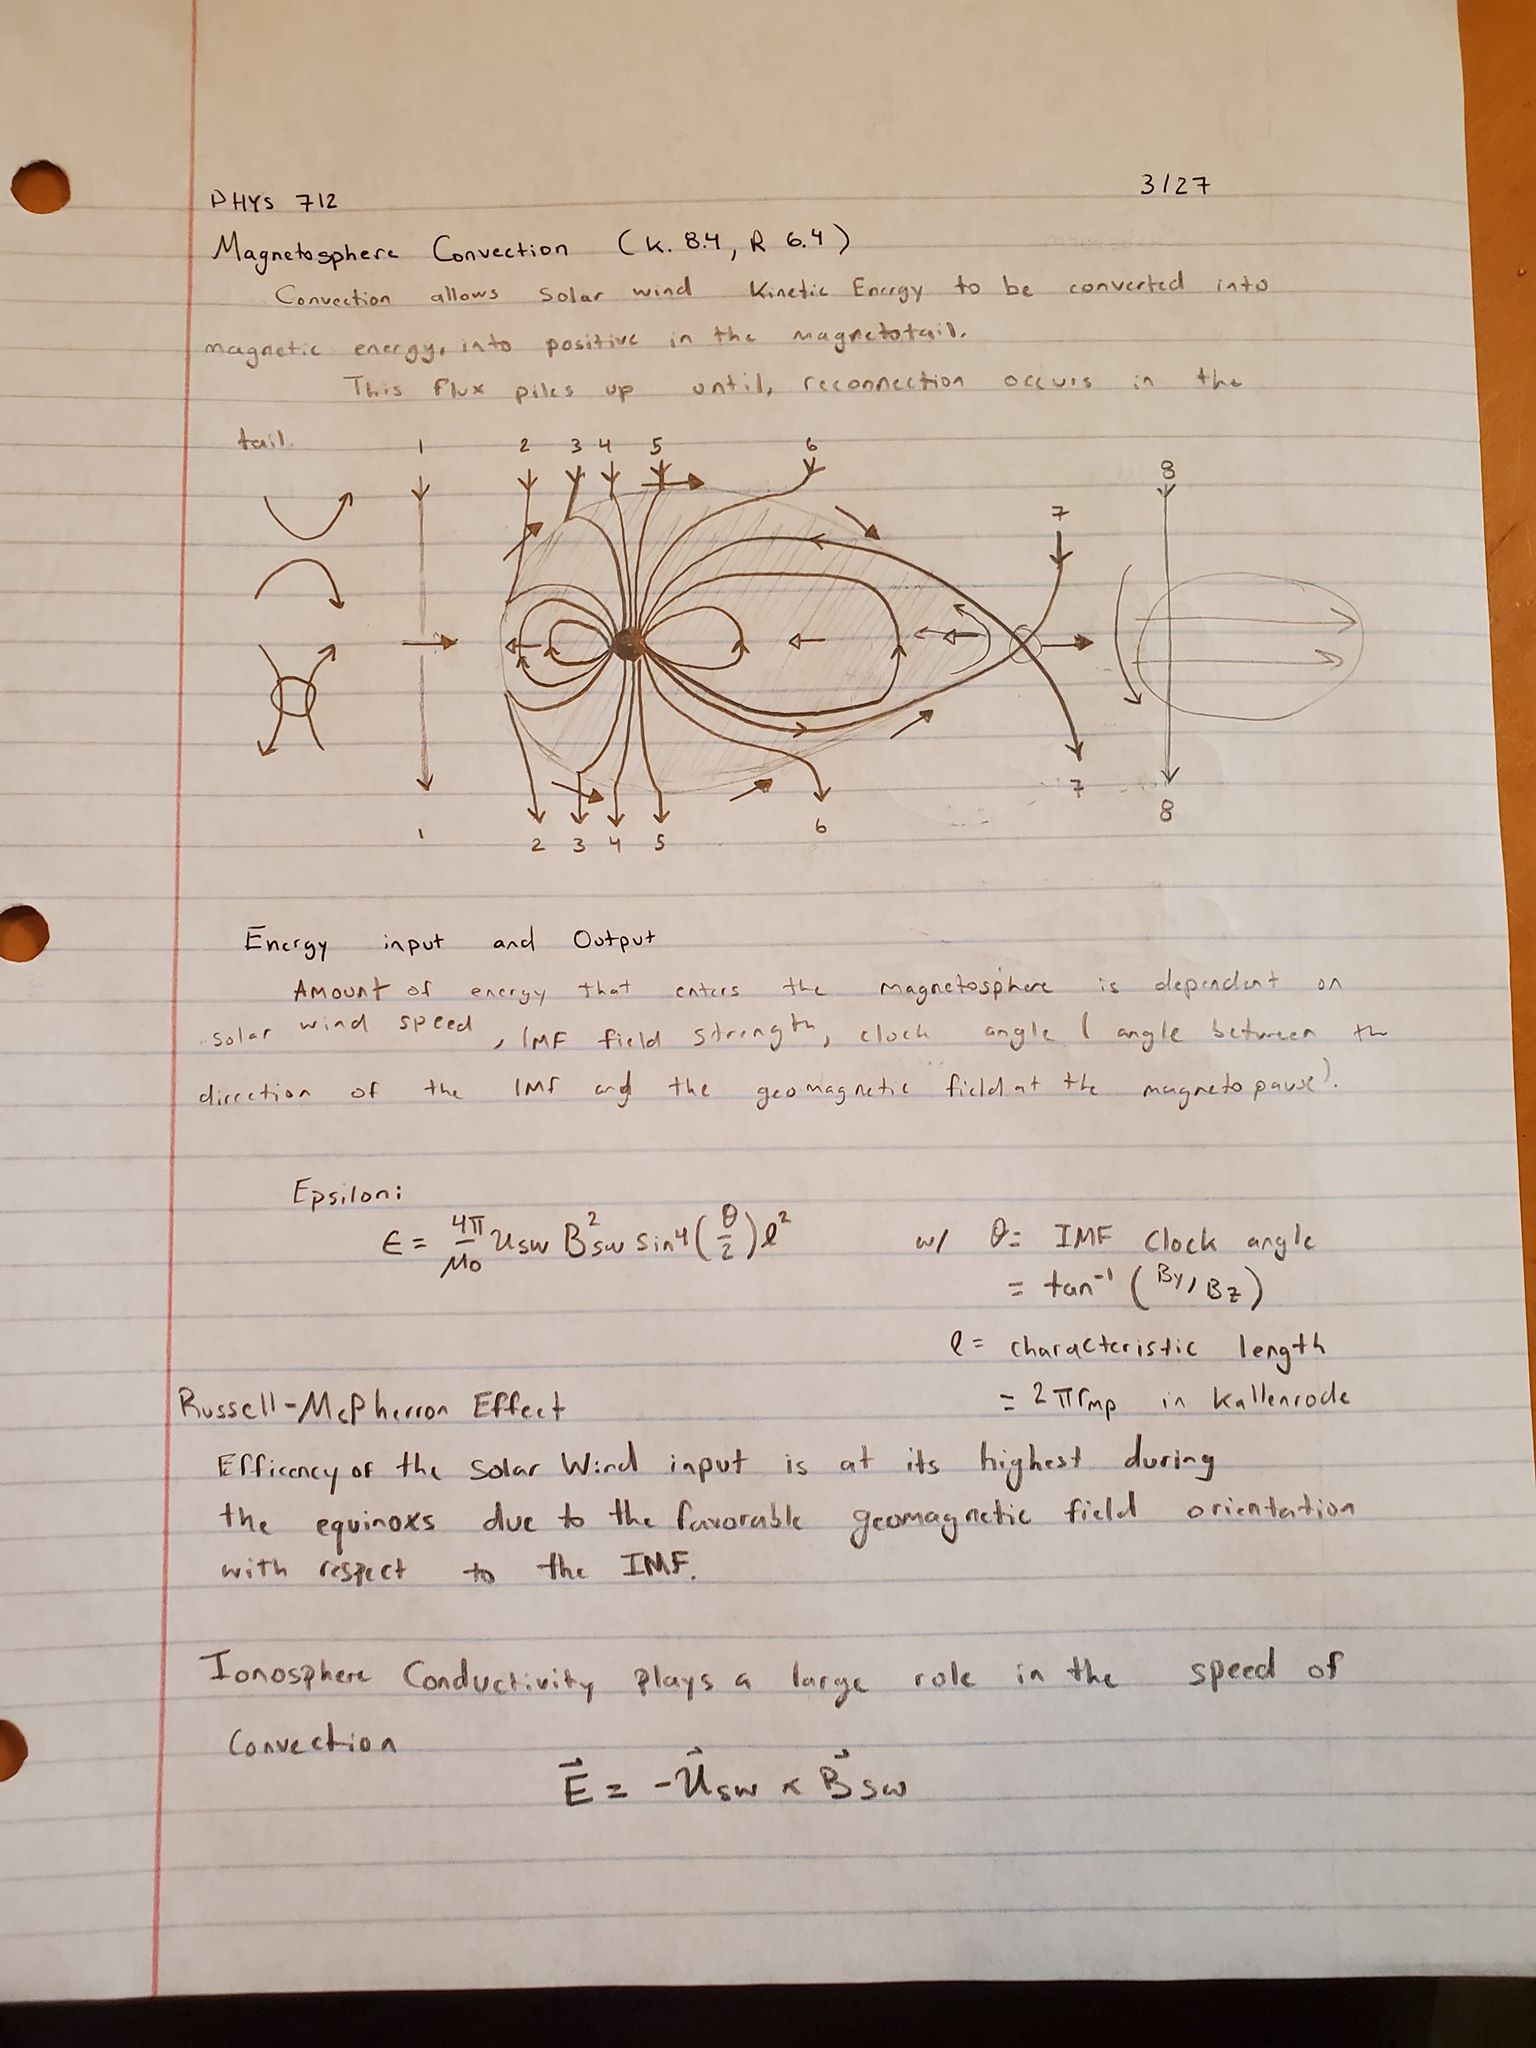 PHYS 712
3/27
Magnetosphere Convection (K. 8.4, R 6.4)
Convection allows Solar wind Kinetic Energy to be converted into
magnetic energy, into positive in the magnetotail.
This flux piles up until, reconnection occurs in the
tail.
1 2 3 4 5 6 8
7
7
1 2 3 4 5 6 8
Energy input and Output
Amount of energy that enters the magnetosphere is dependent on
solar wind speed, IMF field strength, clock angle (angle between th
direction of the IMF and the geomagnetic field at the magnetopause).
Epsilon:
ε = 4π/μ₀ u_sw B²_sw sin⁴(θ/2) ℓ² w/ θ = IMF Clock angle
= tan⁻¹ (By/Bz)
ℓ = characteristic length
= 2πr_mp in Kallenrode
Russell-McPherron Effect
Efficency of the Solar Wind input is at its highest during
the equinoxs due to the favorable geomagnetic field orientation
with respect to the IMF.
Ionosphere Conductivity plays a large role in the speed of
Convection
E⃗ = -u⃗_sw × B⃗_sw